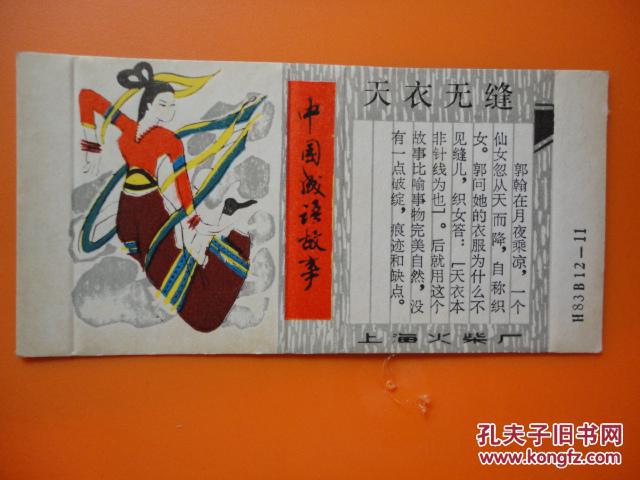 天衣无缝
郭翰在月夜乘凉，一个
仙女忽从天而降，自称织
女。郭问她的衣服为什么不
见缝儿，织女答：「天衣本
非针线为也」。后就用这个
故事比喻事物完美自然，没
有一点破绽，痕迹和缺点。
中国成语故事
上海火柴厂
H83B12-11
孔夫子旧书网
www.kongfz.com